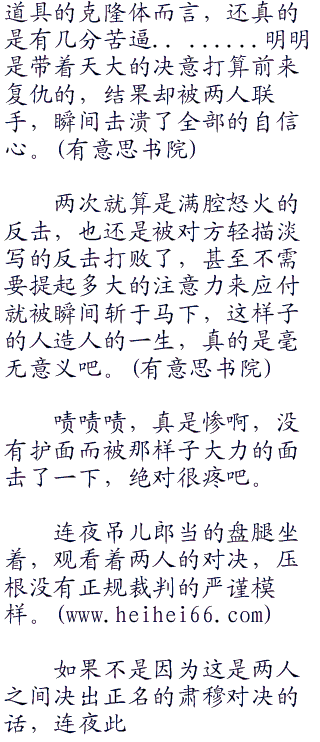 道具的克隆体而言，还真的
是有几分苦逼.. .......明明
是带着天大的决意打算前来
复仇的，结果却被两人联
手，瞬间击溃了全部的自信
心。(有意思书院)
两次就算是满腔怒火的
反击，也还是被对方轻描淡
写的反击打败了，甚至不需
要提起多大的注意力来应付
就被瞬间斩于马下，这样子
的人造人的一生，真的是毫
无意义吧。(有意思书院)
啧啧啧，真是惨啊，没
有护面而被那样子大力的面
击了一下，绝对很疼吧。
连夜吊儿郎当的盘腿坐
着，观看着两人的对决，压
根没有正规裁判的严谨模
样。(www.heihei66.com)
如果不是因为这是两人
之间决出正名的肃穆对决的
话，连夜此